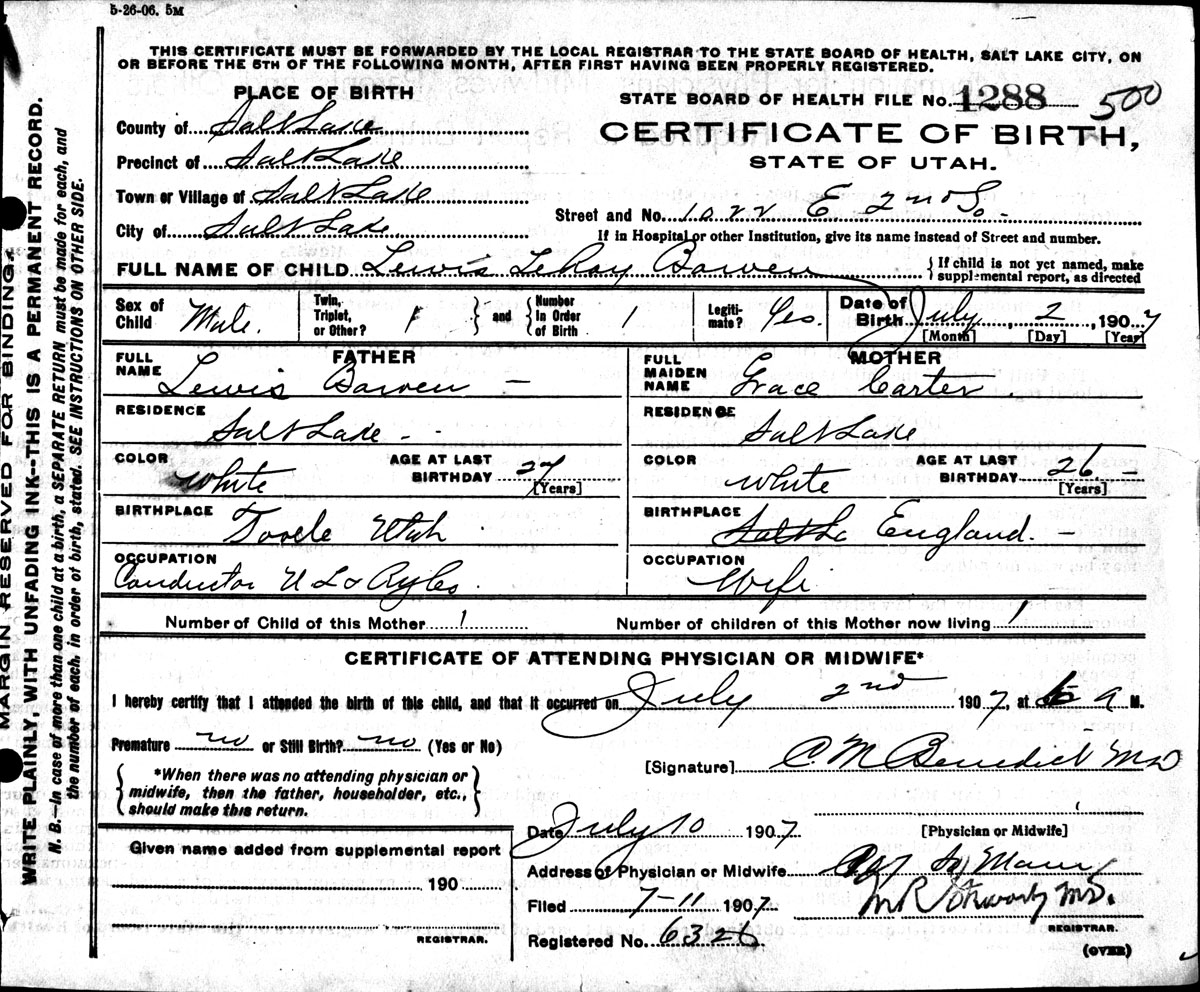 5-26-06. 5M
THIS CERTIFICATE MUST BE FORWARDED BY THE LOCAL REGISTRAR TO THE STATE BOARD OF HEALTH, SALT LAKE CITY, ON
OR BEFORE THE 5TH OF THE FOLLOWING MONTH, AFTER FIRST HAVING BEEN PROPERLY REGISTERED.
PLACE OF BIRTH
STATE BOARD OF HEALTH FILE No. 1288 500
County of Salt Lake
CERTIFICATE OF BIRTH,
Precinct of Salt Lake
STATE OF UTAH.
Town or Village of Salt Lake
Street and No. 1022 E 2nd So.
City of Salt Lake
If in Hospital or other Institution, give its name instead of Street and number.
FULL NAME OF CHILD Lewis LeRoy Bowen
{If child is not yet named, make
supplemental report, as directed
Sex of Child Male.
Twin, Triplet, or Other? 1
} and {
Number in Order of Birth 1
Legiti-mate? Yes.
Date of Birth July, 2, 1907
[Month] [Day] [Year]
FATHER
FULL NAME Lewis Bowen
MOTHER
FULL MAIDEN NAME Grace Carter
RESIDENCE Salt Lake
RESIDENCE Salt Lake
COLOR White
AGE AT LAST BIRTHDAY 27 [Years]
COLOR White
AGE AT LAST BIRTHDAY 26 [Years]
BIRTHPLACE Tooele Utah
BIRTHPLACE England.
OCCUPATION Conductor U L & Ry Co
OCCUPATION Wife
Number of Child of this Mother 1
Number of children of this Mother now living 1
CERTIFICATE OF ATTENDING PHYSICIAN OR MIDWIFE*
I hereby certify that I attended the birth of this child, and that it occurred on July 2nd 1907, at 6 a M.
Premature no or Still Birth? no (Yes or No)
[Signature] C. M. Benedict MD
{*When there was no attending physician or
midwife, then the father, householder, etc.,
should make this return.}
Date July 10 1907
[Physician or Midwife]
Given name added from supplemental report
Address of Physician or Midwife
190
Filed 7-11 1907
REGISTRAR.
REGISTRAR.
Registered No. 6326
(OVER)
MARGIN RESERVED FOR BINDING.
WRITE PLAINLY, WITH UNFADING INK--THIS IS A PERMANENT RECORD.
N. B.-In case of more than one child at a birth, a SEPARATE RETURN must be made for each, and
the number of each, in order of birth, stated. SEE INSTRUCTIONS ON OTHER SIDE.